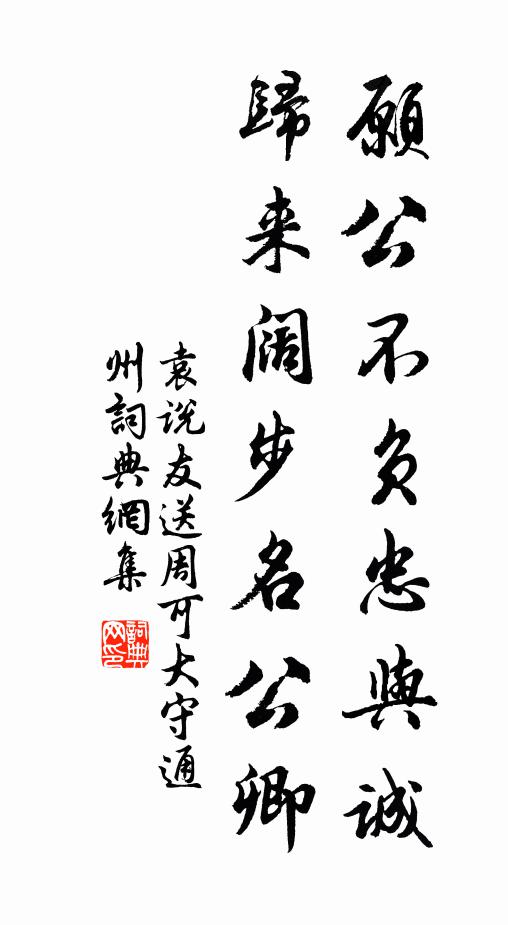 願公不負忠與誠
歸来闊步名公卿
袁説友送周可大守通
州詞典網集
詞典网印